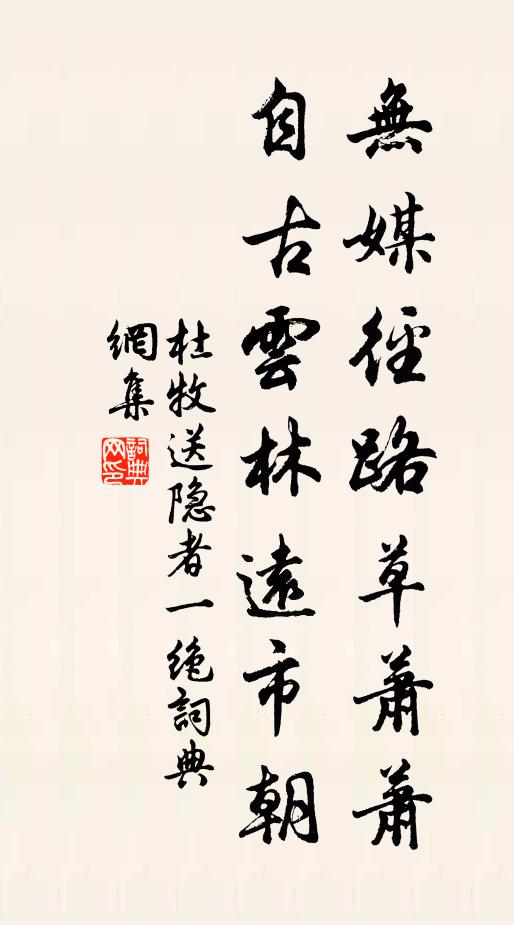 無媒徑路草蕭蕭
自古雲林遠市朝
杜牧送隐者一絶詞典
網集
詞典
网印